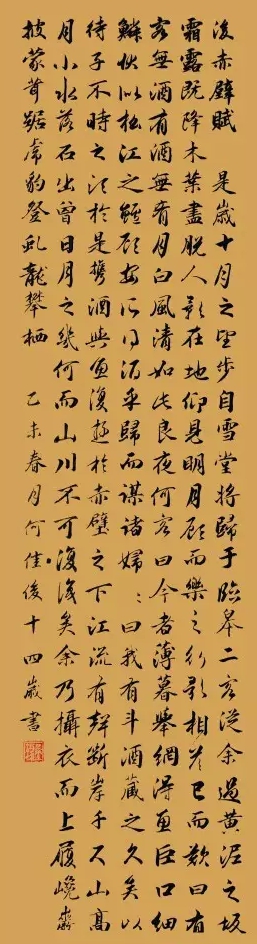 後赤壁賦 是歲十月之望步自雪堂將歸于臨皋二客從余過黃泥之坂
霜露既降木葉盡脫人影在地仰見明月顧而樂之行歌相答已而歎曰有
客無酒有酒無肴月白風清如此良夜何客曰今者薄暮舉網得魚巨口細
鱗狀似松江之鱸顧安所得酒乎歸而謀諸婦:曰我有斗酒藏之久矣以
待子不時之須於是攜酒與魚復遊於赤壁之下江流有聲斷岸千尺山高
月小水落石出曾日月之幾何而山川不可復識矣余乃攝衣而上履巉巖
披蒙茸踞虎豹登虬龍攀栖 乙未春月何佳俊十四歲書